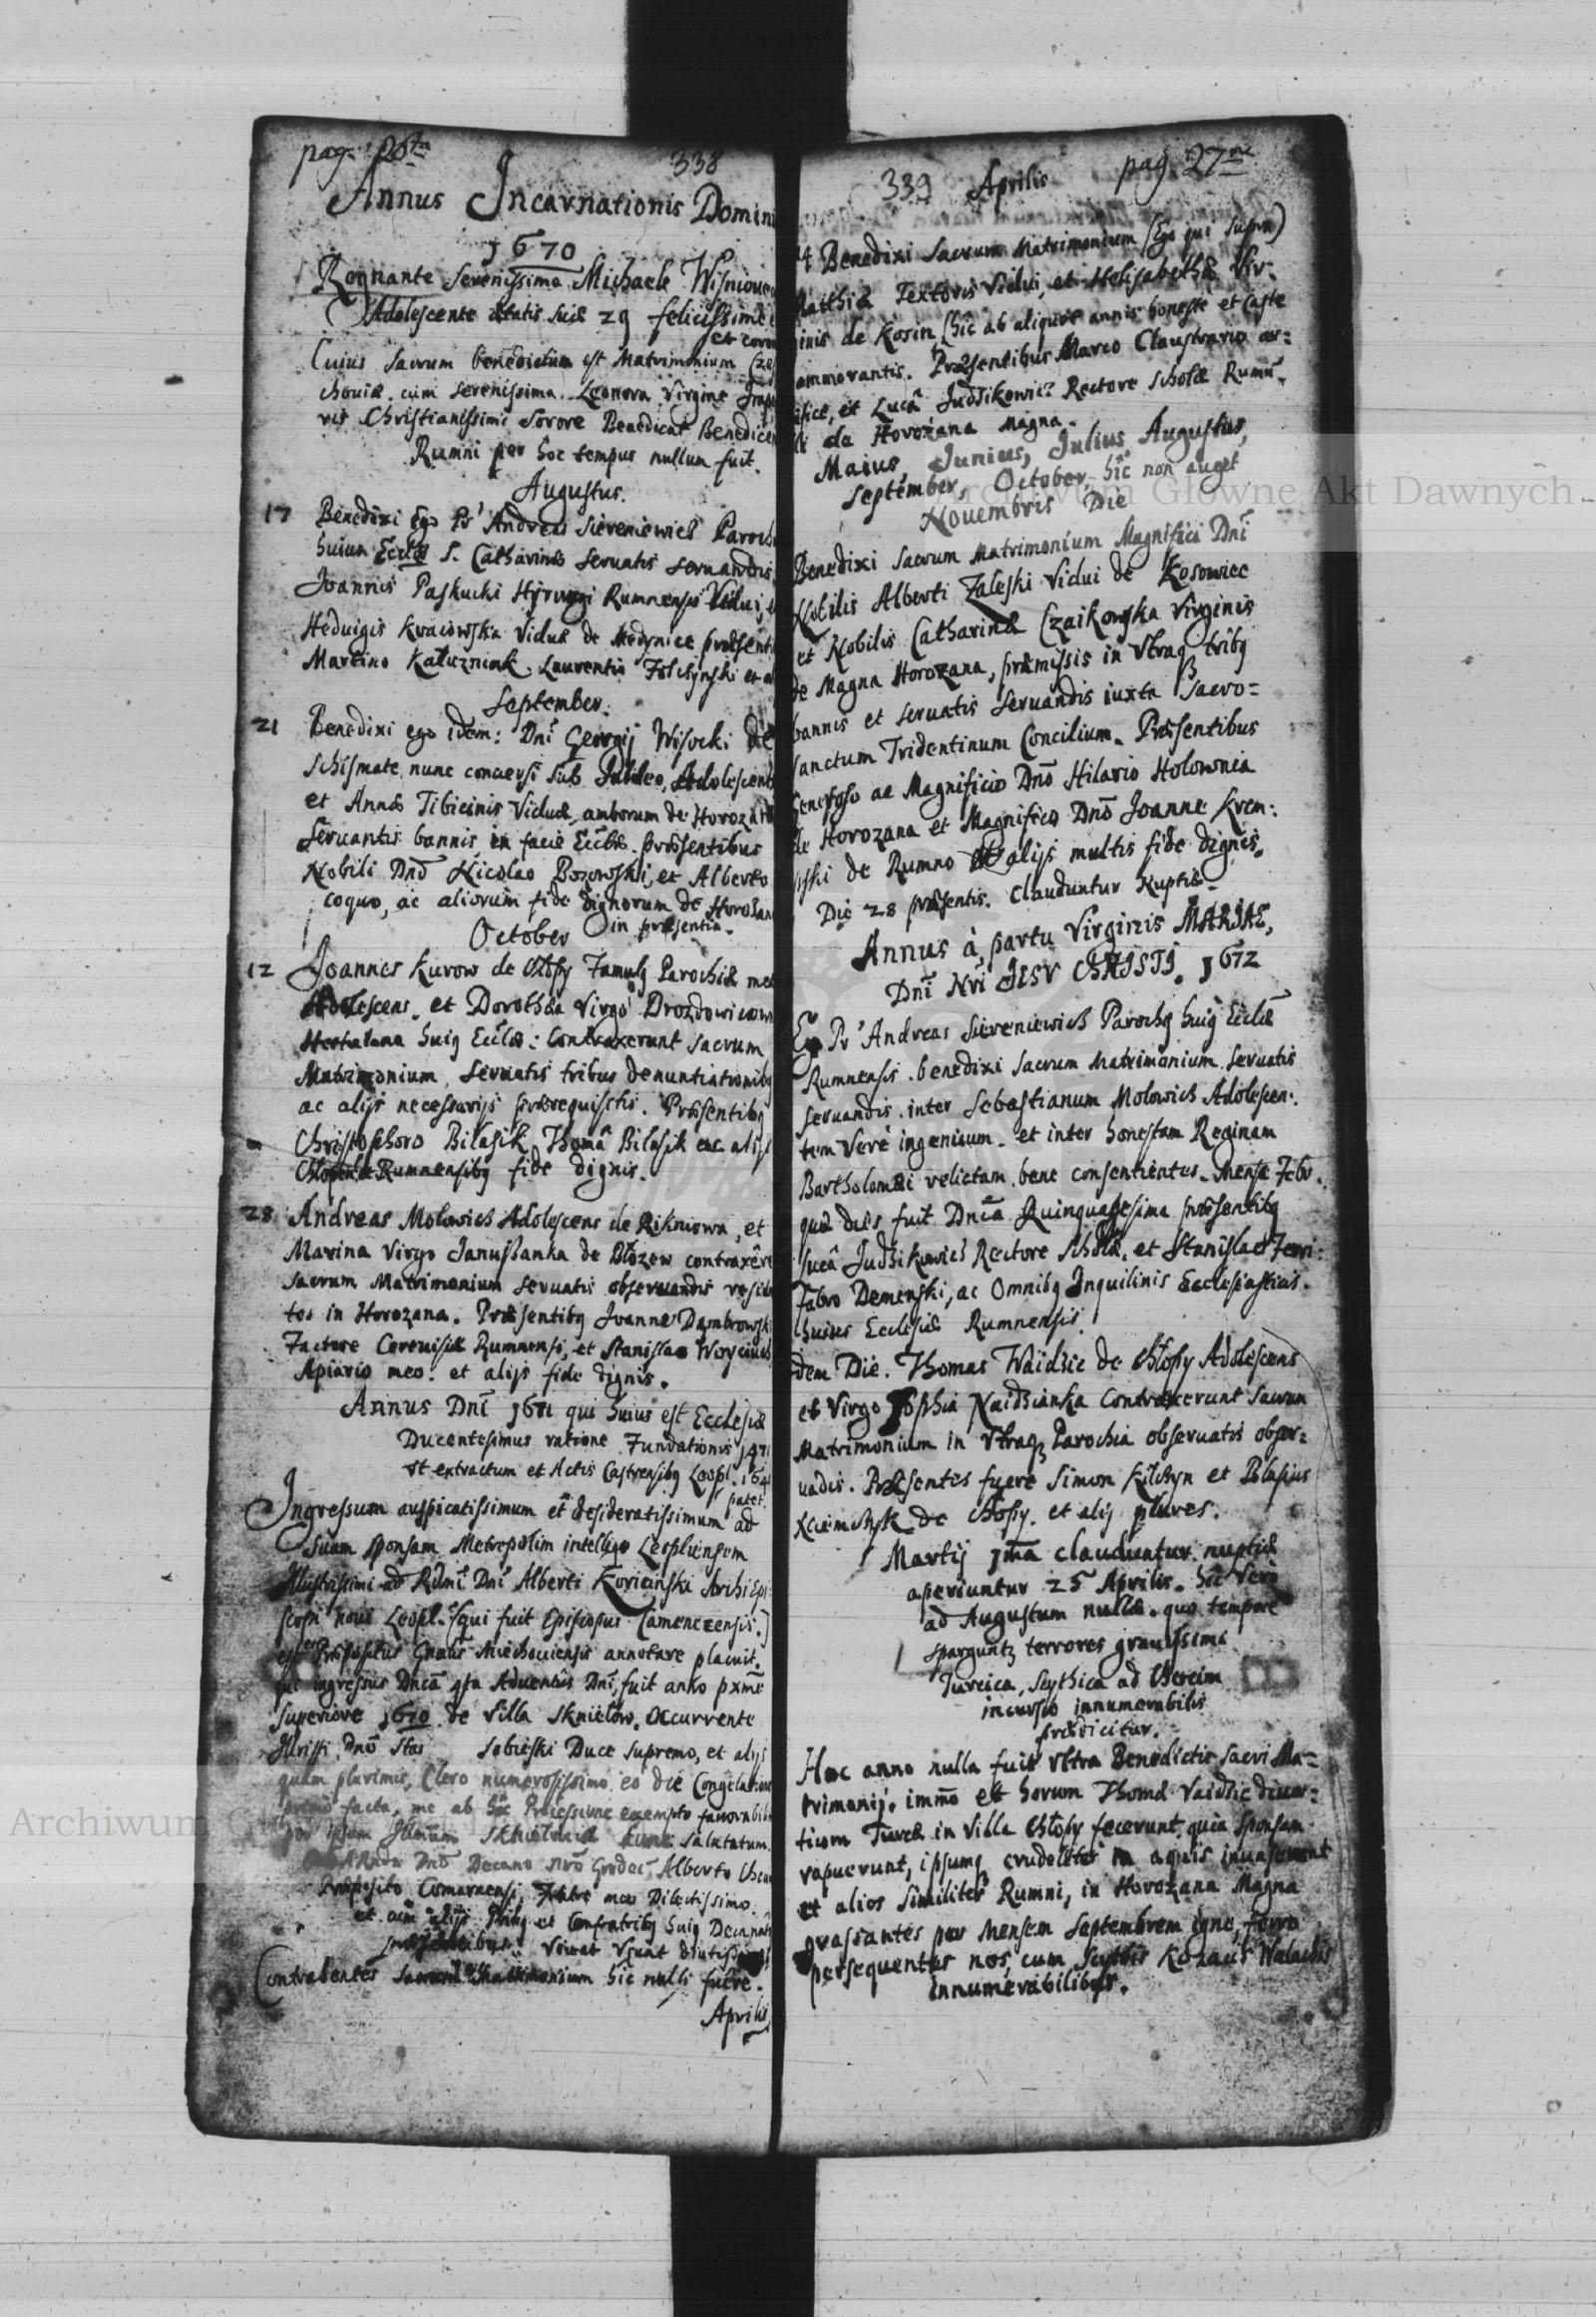 pag. 26ta 338
Annus Incarnationis Domini
1670
Regnante Serenissimo Michaele Wisniowe
Adolescente ætatis suæ 29 felicissime
et coron
Cuius Sacrum benedictum est Matrimonium Cze
choviæ cum serenissima Leonora Virgine Impe
ris Christianissimi Sorore Benedicat Benedicen
Rumni per hoc tempus nullum fuit.
Augustus.
17 Benedixi Ego Pr Andreas Siereniewicz Paroch
huius Eccłæ S. Catharinæ servatis servandis
Joannis Paskucki Rumnensis Vidui, e
Heduigis Kraiowska Viduæ de Medynice præsenti
Martino Kałuzniak Laurentio et a
September.
21 Benedixi ego idem: Dni Georgij Wisocki de
Schismate nunc conuersi sub Jubileo, Adolescent
et Annæ Tibicinis Viduæ amborum de Horozan
Servantis bannis in facie Eccłæ. præsentibus
Nobili Dnō Nicolao Bozowski, et Alberto
coquo, ac aliorum fide dignorum de Horozan
October in præsentia.
12 Joannes Kurow de Chłopy Famulq Parochiæ meæ
Adolescens, et Dorothæa Virgo Drozdowiczown
huiq Eccłæ: Contraxerunt sacrum
Matrimonium, servatis tribus denuntiationibq
ac alijs necessarijs prærequisitis. Præsentibq
Christophoro Bilasik Thomâ Bilasik ac alijs
Rumnensibq fide dignis.
28 Andreas Molowich Adolescens de Rikniowa, et
Marina Virgo Janussanka de Błozew contraxêre
sacrum Matrimonium servatis observandis resid
tes in Horozana. Præsentibq Joanne Dambrowski
Factore Cerevisiæ Rumnensi, et Stanislao
Apiario meo. et alijs fide dignis.
Annus Dni 1671 qui huius est Ecclesiæ
Ducentesimus ratione Fundationis 1471
Vt extractum et Actis Castrensibq Leopl. 164
patet.
Ingressum auspicatissimum et desideratissimum ad
Suam sponsam Metropolim intelligo Leopliensem
Illustrissimi ad Rdmi Dni Alberti Koricinski Archi Epi
scopi noui Leopl. (qui fuit Episcopus Camencensis.)
Præpositus Gnālis Miechouiensis annotare placuit.
ingressus Dncā 4ta Aduentûs Dni, fuit anno pxmē
superiore 1670 de Villa Skniełow. Occurrente
Illrissi Dnō Sobieski Duce supremo, et alijs
quam plurimis, Clero numerosissimo eo die Congelatione
facta, me ab hâc Processione exempto fauorabili
salutatum.
Dnō Decano Grodec Alberto
Præposito Comarnensi, Fratre meo Dilectissimo
et Confratribq huiq Decanat
Viuat
Contrahentes Sacrum Matrimonium hîc nulli fuêre.
Aprilis
339 Aprilis pag. 27ma
14 Benedixi Sacrum Matrimonium (Ego qui supra)
Matthiæ Textoris Vidui, et Helisabethæ Vir:
ginis de Kosin (hîc ab aliquot annis honeste et caste
ommorantis. Præsentibus Marco Claustrario ar:
ifice, et Lucâ Judzikowicz Rectore Scholæ Rumn.
de Horozana Magna.
Maius, Junius, Julius Augustus,
September, October, hîc non auget
Nouembris Die
Benedixi Sacrum Matrimonium Magnifici Dni
Nobilis Alberti Zaleski Vidui de Kosowiec
et Nobilis Catharinæ Czaikowska Virginis
de Magna Horozana, præmissis in Vtraq tribq
bannis et servatis servandis iuxta Sacro=
sanctum Tridentinum Concilium. Præsentibus
Generoso ac Magnifico Dnō Hilario Holownia
de Horozana et Magnifico Dnō Joanne Krem:
pski de Rumno et alijs multis fide dignis.
Die 28 præsentis. Clauduntur Nuptiæ.
Annus à partu Virginis MARIÆ,
Dni Nri JESV CHRISTI, 1672
Ego Pr Andreas Siereniewich Parochq huiq Eccłæ
Rumnensis benedixi sacrum matrimonium servatis
servandis inter Sebastianum Molowich Adolescen:
tem Verè ingenium et inter honestam Reginam
Bartholomæi relictam bene consentientes. Mense Febr.
quæ dies fuit Dncā Quinquagesima præsentibq
Lucâ Judzikowich Rectore Scholæ, et Stanislao Ferri:
Fabro Demenski, ac Omnibq Inquilinis Ecclesiasticis
huius Ecclesiæ Rumnensis.
dem Die. Thomas Waidzic de Chłopy Adolescens
et Virgo Sophia Naidzianka contraxerunt sacrum
Matrimonium in Vtraq Parochia observatis obser=
uadis. Præsentes fuere Simon Kilchyn et Blasius
de Chłopy. et alij plures.
Martij 1ma clauduntur nuptiæ
aperiuntur 25 Aprilis. hîc verò
ad Augustum nullæ. quo tempore
sparguntz terrores grauissimi
Turcica, Scythica ad
incursio innumerabilis
prædicitur.
Hoc anno nulla fuit Vltra Benedictio Sacri Ma=
trimonij. immō et horum Thomæ Vaidzic diuor:
tium Turcæ in Villa Chłopy fecerunt, quia sponsam
rapuerunt, ipsumq crudeliter in agris
et alios similiter Rumni, in Horozana Magna
grassantes per Mensem Septembrem igne, ferro
persequentes nos, cum Scythis Kozacis Walachis
innumerabilibus.
Archiwum Główne Akt Dawnych